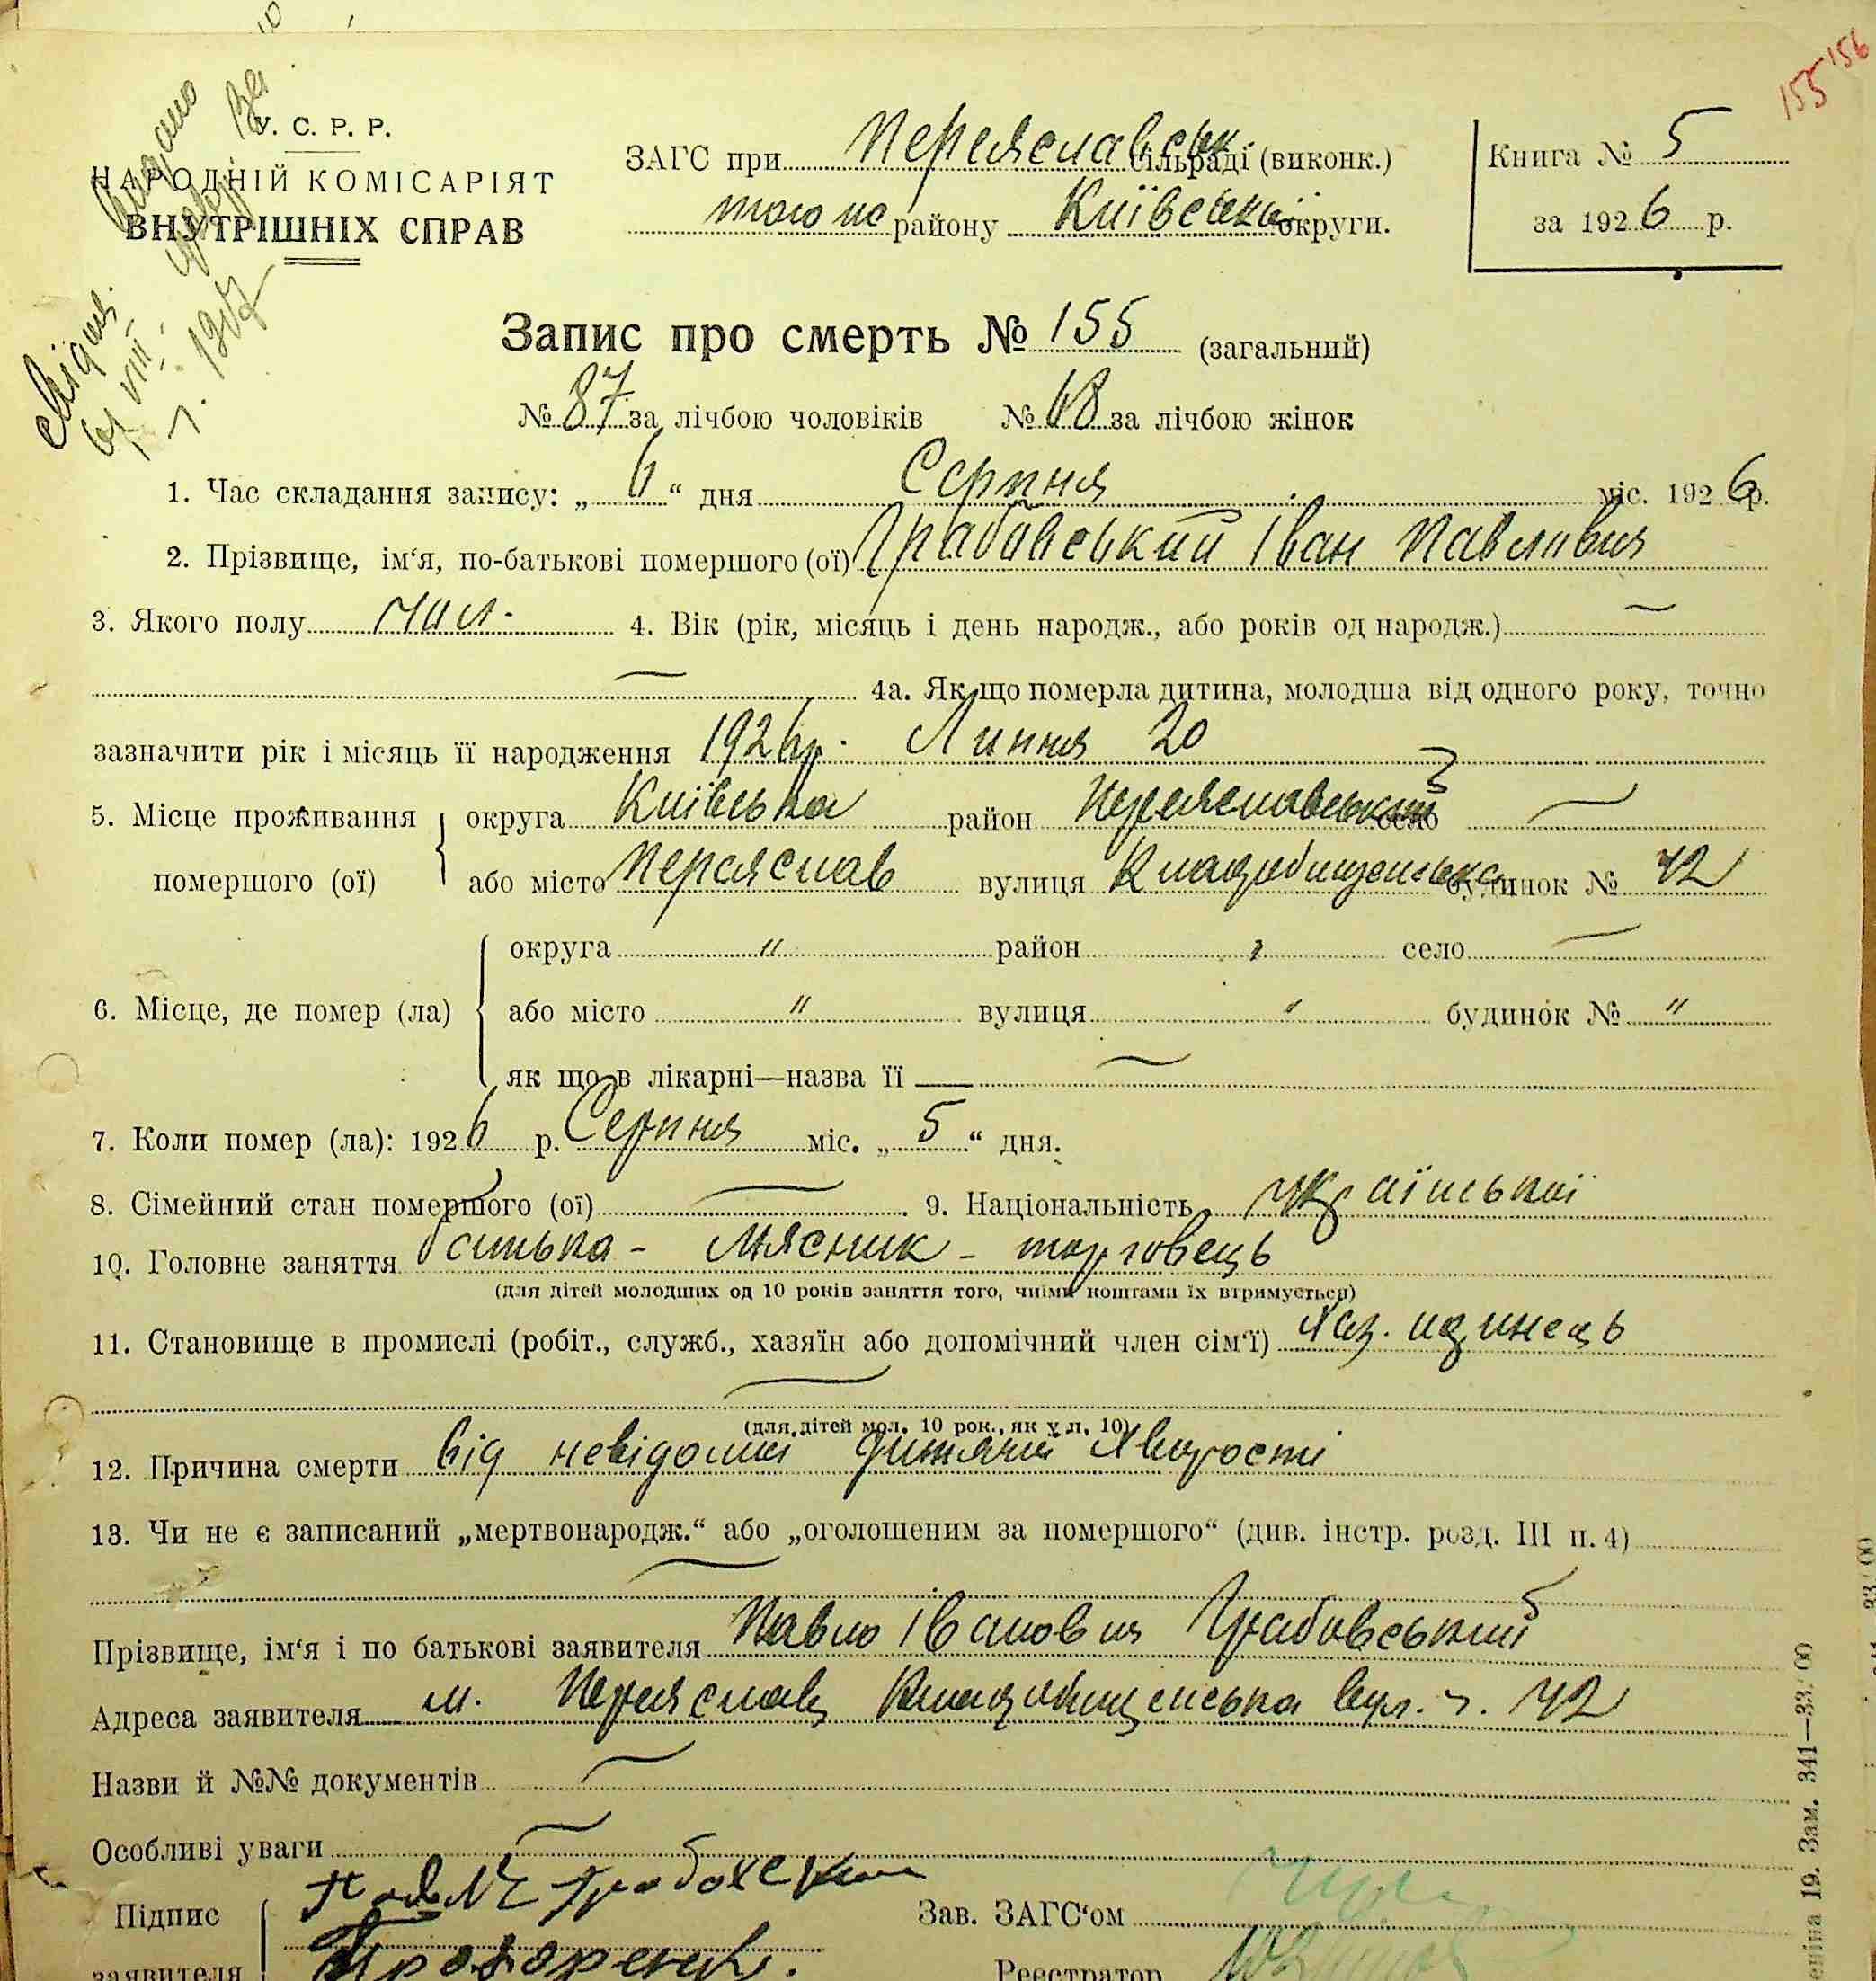 155 156
У. С. Р. Р.
НАРОДНІЙ КОМІСАРІЯТ
ВНУТРІШНІХ СПРАВ
Видано
1927
ЗАГС при Переяславськ. сільраді (виконк.)
того не району Київської округи.
Книга № 5
за 1926 р.
Запис про смерть № 155 (загальний)
№ 87 за лічбою чоловіків № 68 за лічбою жінок
1. Час складання запису: „ 6 “ дня Серпня міс. 1926 р.
2. Прізвище, ім‘я, по-батькові помершого (ої) Грабовський Іван Павлович
3. Якого полу чол. 4. Вік (рік, місяць і день народж., або років од народж.) —
— 4а. Як що померла дитина, молодша від одного року, точно
зазначити рік і місяць її народження 1926 р. Липня 20
5. Місце проживання помершого (ої) округа Київська район Переяславський село —
або місто Переяслав вулиця Кладовищенська будинок № 42
6. Місце, де помер (ла) округа " район " село —
або місто " вулиця " будинок № "
як що в лікарні—назва її —
7. Коли помер (ла): 1926 р. Серпня міс. „ 5 “ дня.
8. Сімейний стан помершого (ої) — 9. Національність української
10. Головне заняття батька - мясник - торговець
(для дітей молодших од 10 років заняття того, чиїми коштами їх втримується)
11. Становище в промислі (робіт., служб., хазяїн або допомічний член сім‘ї) Хаз. одинець
—
(для дітей мол. 10 рок., як у п. 10)
12. Причина смерти від невідомої дитячої хворости
13. Чи не є записаний „мертвонародж.“ або „оголошеним за помершого“ (див. інстр. розд. III п. 4)
—
Прізвище, ім‘я і по батькові заявителя Павло Іванович Грабовський
Адреса заявителя м. Переяслав Кладовищенська вул. ч. 42
Назви й №№ документів —
Особливі уваги —
Підпис
заявителя
Зав. ЗАГС‘ом
Реєстратор
19. Зам. 341—33.000